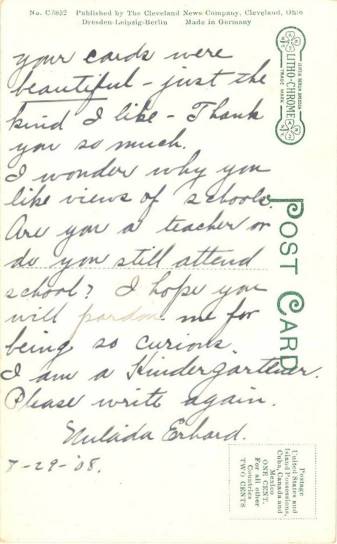 No. C5852 Published by The Cleveland News Company, Cleveland, Ohio
Dresden-Leipzig-Berlin Made in Germany
your cards were
beautiful - just the
kind I like - Thank
you so much.
I wonder why you
like views of schools.
Are you a teacher or
do you still attend
school? I hope you
will pardon me for
being so curious.
I am a Kindergartener.
Please write again.
Milada Erhard.
7-29-'08.
LITHO-CHROME
TRADE MARK
POST CARD
Postage
United States and
Island Possessions,
Cuba, Canada and
Mexico
ONE CENT.
For all other
Countries
TWO CENTS